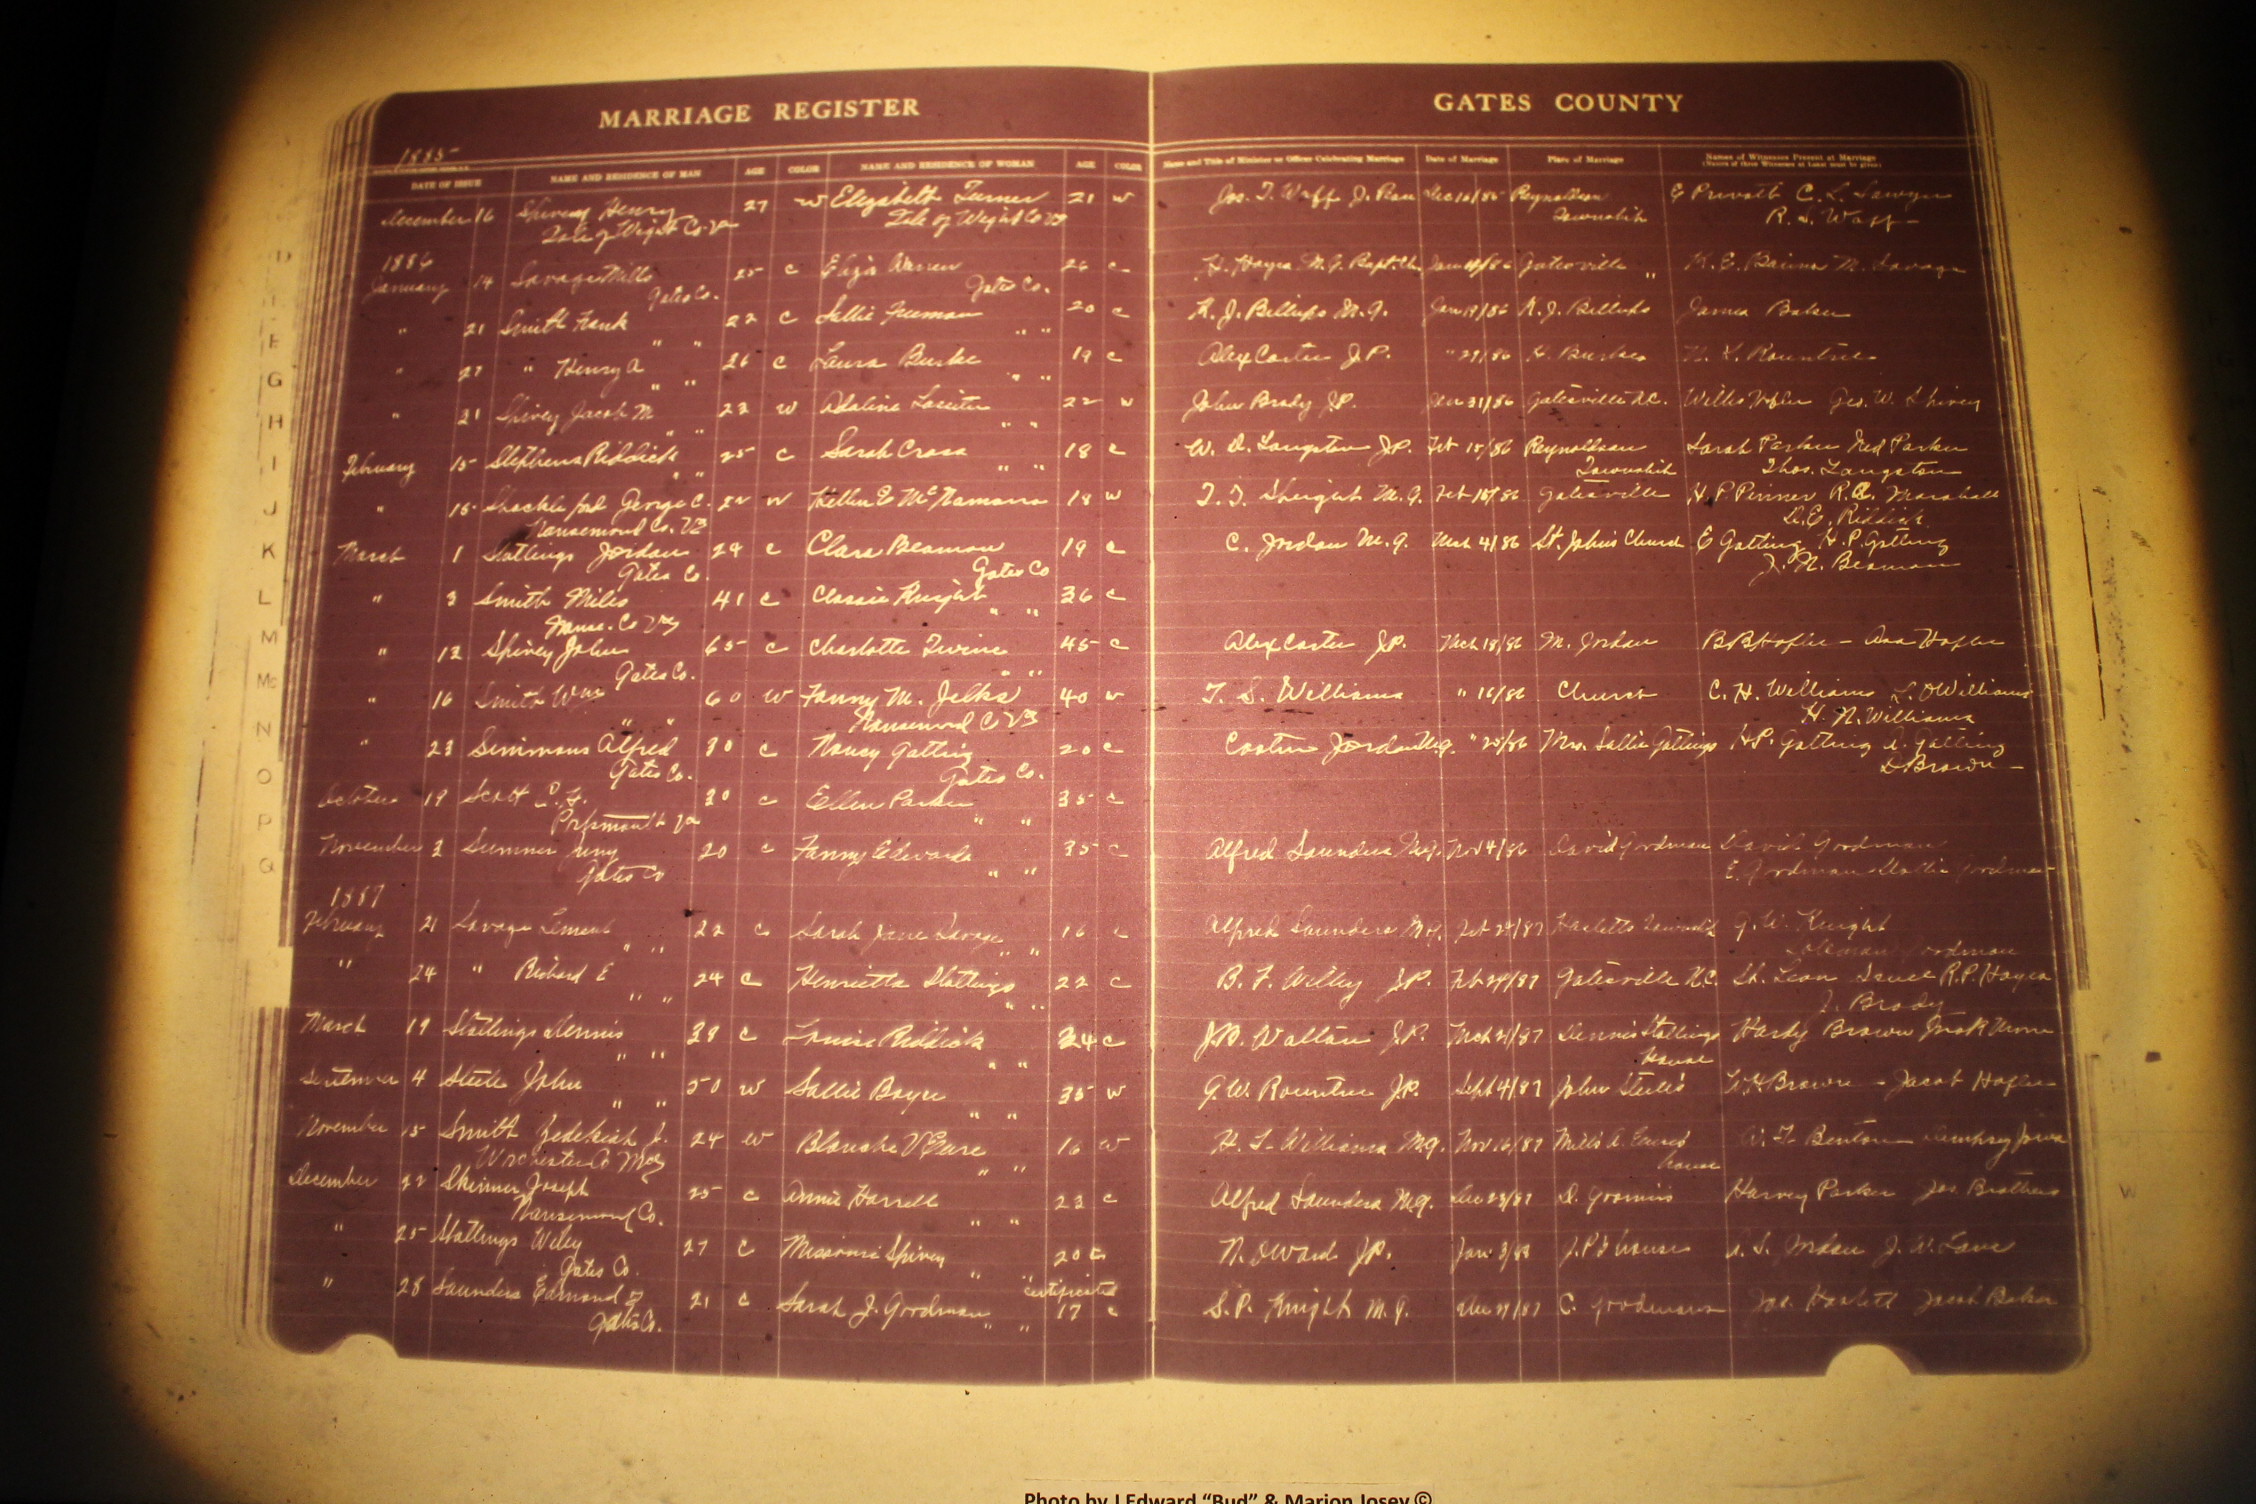 MARRIAGE REGISTER
GATES COUNTY
1885
DATE OF ISSUE NAME AND RESIDENCE OF MAN AGE COLOR NAME AND RESIDENCE OF WOMAN AGE COLOR Name and Title of Minister or Officer Celebrating Marriage Date of Marriage Place of Marriage Names of Witnesses Present at Marriage
(Names of three Witnesses at least must be given)
December 16 Spivey Henry 27 w Elizabeth Turner 21 w Jos. T. Waff J. Peace Dec 16/85 Reynoldson E C. L. Sawyer
Isle of Wight Co. Va Isle of Wight Co Va Township R. S. Waff
1886
January 14 Savage Mills 25 c Eliza Warren 26 c H. Hayes M.G. Bapt. Ch. Jan 14/86 Gatesville " M. Savage
Gates Co. Gates Co.
" 21 Smith Frank 22 c Sallie Freeman 20 c K. J. Billups M.G. Jan 19/86 K. J. Billups James Baker
" " " "
" 27 " Henry A 26 c Laura Burke 19 c Alex Carter J.P. " 29/86 H. Rountree
" " " "
" 31 Spivey Jacob M 22 w Adaline Lassiter 22 w John Brady J.P. Jan 31/86 Gatesville N.C. Willis Hofler Geo. W. Spivey
" " " "
February 15 Stephens Riddick 25 c Sarah Cross 18 c W. D. Langston J.P. Feb 18/86 Reynoldson Sarah Parker Ned Parker
" " " " Township Thos. Langston
" 15 Shackleford George C. 22 w Hellen E McNamara 18 w T. T. Speight M.G. Feb 18/86 Gatesville H. P. Pinner R. C. Marshall
Nansemond Co. Va D. E. Riddick
March 1 Stallings Jordan 24 c Clara Beaman 19 c C. Jordan M.G. Mch 4/86 St. Johns Church E Gatling H. P. Gatling
Gates Co. Gates Co J. N. Beaman
" 3 Smith Miles 41 c Classie Knight 36 c
Nanse. Co Va " "
" 12 Spivey John 65 c Charlotte Twine 45 c Alex Carter J.P. Mch 18/86 M. Jordan B B Hofler - Asa Hofler
Gates Co. " "
" 16 Smith Wm 60 w Fanny M. Jelks 40 w T. S. Williams " 16/86 Church C. H. Williams L. O Williams
" " Nansemond C Va H. N. Williams
" 23 Simmons Alfred 30 c Nancy Gatling 20 c Caster Jordan M.G. " 25/86 Mrs. Sallie Gatlings H P. Gatling A. Gatling
Gates Co. Gates Co. D Brown
October 19 Scott 30 c Ellen Parker 35 c
Portsmouth Va " "
November 3 Sumner Jerry 20 c Fanny Edwards 35 c Alfred Saunders M.G. Nov 4/86 David Goodman David Goodman
Gates Co " " E. Goodman Hallie Goodman
1887
February 21 Savage Lemuel 22 c Sarah Jane Savage 16 c Alfred Saunders M.G. Feb 24/87 Hasletts Township G. W. Knight
" " " " Goodman
" 24 " Richard E 24 c Henrietta Stallings 22 c B. F. Willey J.P. Feb 24/87 Gatesville N.C. R.P. Hayes
" " " " J. Brady
March 19 Stallings Dennis 38 c Louise Riddick 24 c J.B. Walton J.P. Mch 21/87 Dennis Stallings Hardy Brown
" " " " House
September 4 Steele John 50 w Sallie Boyce 35 w G. W. Rountree J.P. Sept 4/87 John Steele's W H Brown - Jacob Hofler
" " " "
November 15 Smith Zedekiah J. 24 w Blanche V Eure 16 w H. T. Williams M.G. Nov 16/87 Mills A. Eure's W. T. Benton Dempsey Jones
Worchester Co Md " " house
December 22 Skinner Joseph 25 c Annie Harrell 23 c Alfred Saunders M.G. Dec 23/87 Harvey Parker Jos. Brothers
Nansemond Co. " "
" 25 Stallings Wiley 27 c Missouri Spivey 20 c N. O Ward J.P. Jan 3/88 J.P's house A. S. Jordan J. W. Lane
Gates Co. " "
" 28 Saunders Edmond 21 c Sarah J. Goodman certificated 17 c S. P. Knight M.G. Dec 29/87 C. Goodmans Jos. Haslett Jacob Baker
Gates Co. " "
D
E
G
H
I
J
K
L
M
Mc
N
O
P
Q
W
Photo by J Edward "Bud" & Marion Josey ©